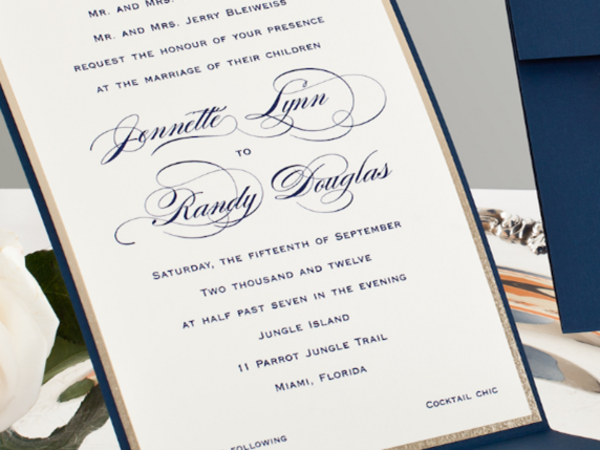 Mr. and Mrs.
Mr. and Mrs. Jerry Bleiweiss
request the honour of your presence
at the marriage of their children
Jennette Lynn
to
Randy Douglas
Saturday, the fifteenth of September
Two thousand and twelve
at half past seven in the evening
Jungle Island
11 Parrot Jungle Trail
Miami, Florida
Cocktail chic
following